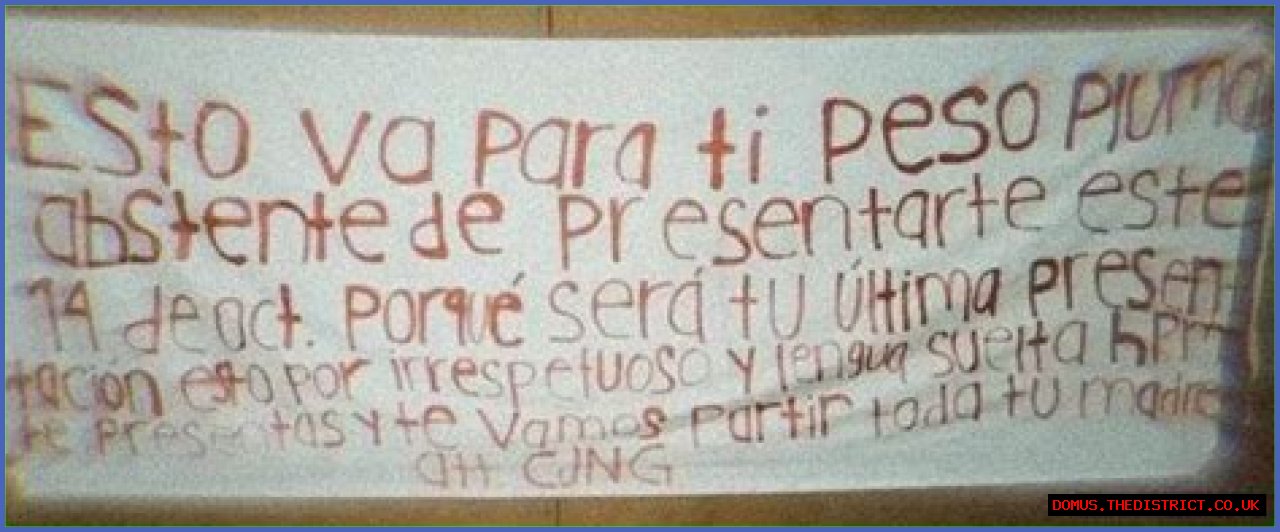 Esto va para ti peso pluma
abstente de presentarte este
14 de oct. porqué será tu última presen-
tacion esto por irrespetuoso y lengua suelta hpm
te presentas y te vamos partir toda tu madre
att CJNG
DOMUS.THEDISTRICT.CO.UK